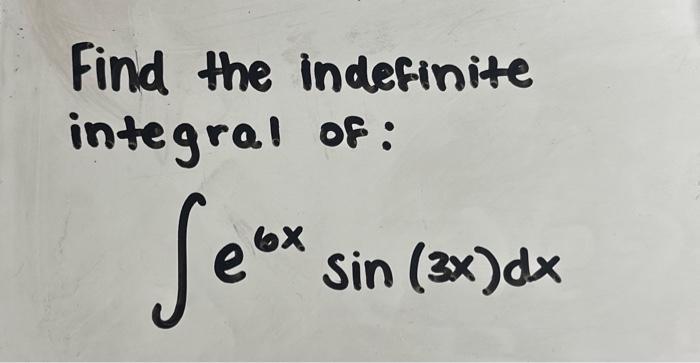 Find the indefinite
integral of:
∫e^{6x} sin (3x)dx